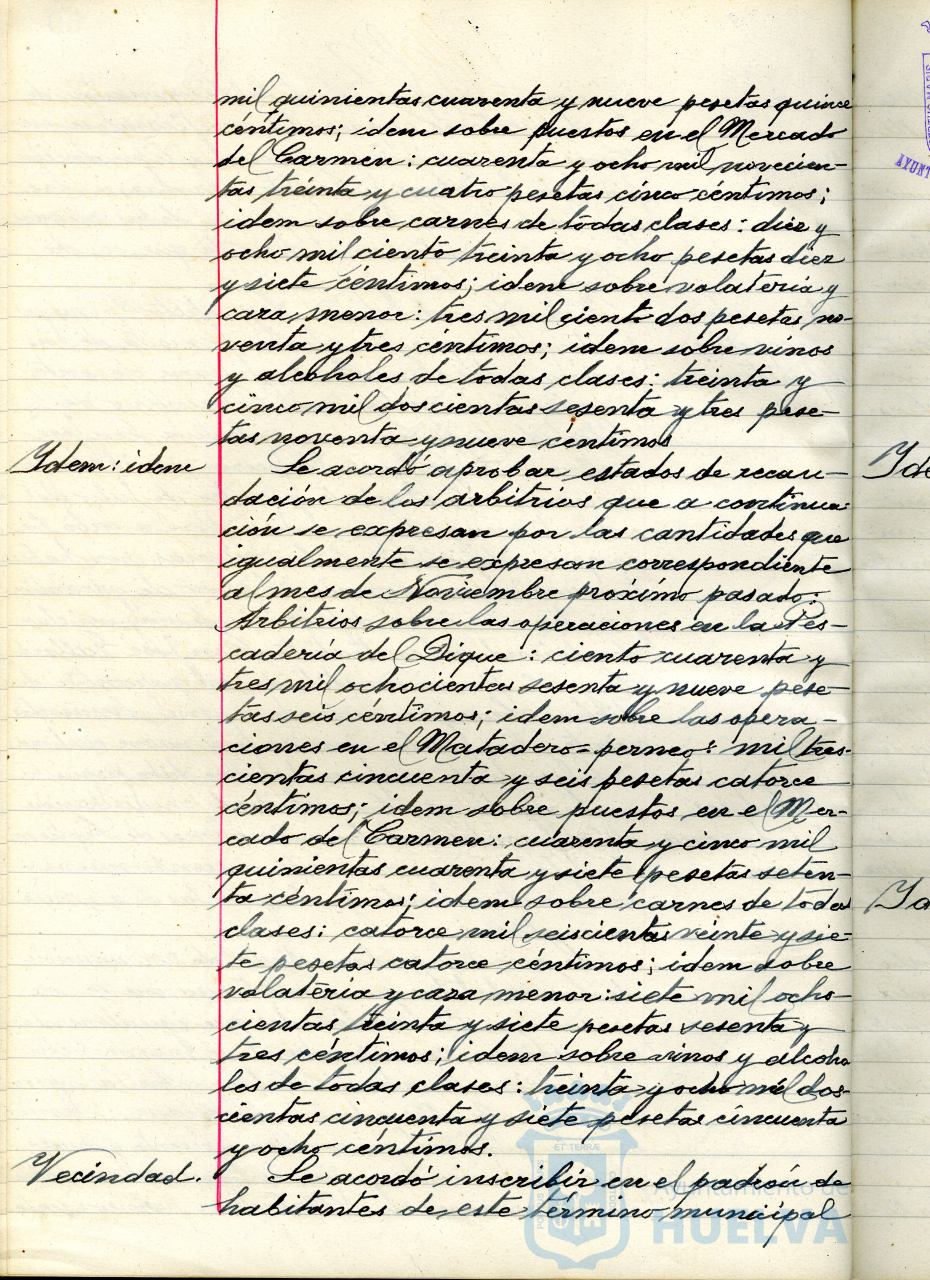 mil quinientas cuarenta y nueve pesetas quince
céntimos; idem sobre puestos en el Mercado
del Carmen: cuarenta y ocho mil novecien-
tas treinta y cuatro pesetas cinco céntimos;
idem sobre carnes de todas clases: diez y
ocho mil ciento treinta y ocho pesetas diez
y siete céntimos; idem sobre volateria y
caza menor: tres mil ciento dos pesetas no-
venta y tres céntimos; idem sobre vinos
y alcoholes de todas clases: treinta y
cinco mil doscientas sesenta y tres pese-
tas noventa y nueve céntimos
Ydem: idem
Se acordó aprobar estados de recau-
dación de los arbitrios que a continua-
ción se expresan por las cantidades que
igualmente se expresan correspondiente
al mes de Noviembre próximo pasado:
Arbitrios sobre las operaciones en la Pes-
cadería del Dique: ciento cuarenta y
tres mil ochocientas sesenta y nueve pese-
tas seis céntimos; idem sobre las opera-
ciones en el Matadero=perneo: mil tres-
cientas cincuenta y seis pesetas catorce
céntimos; idem sobre puestos en el Mer-
cado del Carmen: cuarenta y cinco mil
quinientas cuarenta y siete pesetas seten-
ta céntimos; idem sobre carnes de todas
clases: catorce mil seiscientas veinte y sie-
te pesetas catorce céntimos; idem sobre
volateria y caza menor: siete mil ocho-
cientas treinta y siete pesetas sesenta y
tres céntimos; idem sobre vinos y alcoho
les de todas clases: treinta y ocho mil dos-
cientas cincuenta y siete pesetas cincuenta
y ocho céntimos.
Vecindad.
Se acordó inscribir en el padrón de
habitantes de este término municipal
Ayuntamiento de
HUELVA